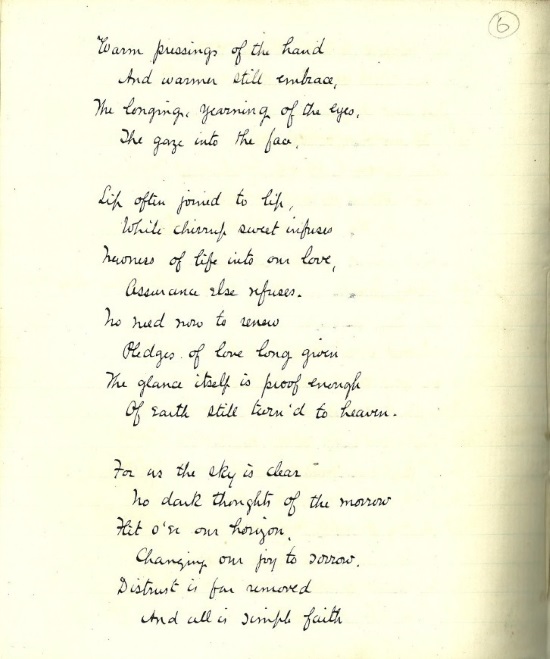 6
Warm pressings of the hand
And warmer still embrace,
The longing, yearning of the eyes,
The gaze into the face,
Lip often joined to lip,
While chirrup sweet infuses
Newness of life into our love,
Assurance else refuses.
No need now to renew
Pledges of love long given
The glance itself is proof enough
Of Earth still turn'd to heaven.
For us the sky is clear
No dark thoughts of the morrow
Flit o'er our horizon,
Changing our joy to sorrow.
Distrust is far removed
And all is simple faith